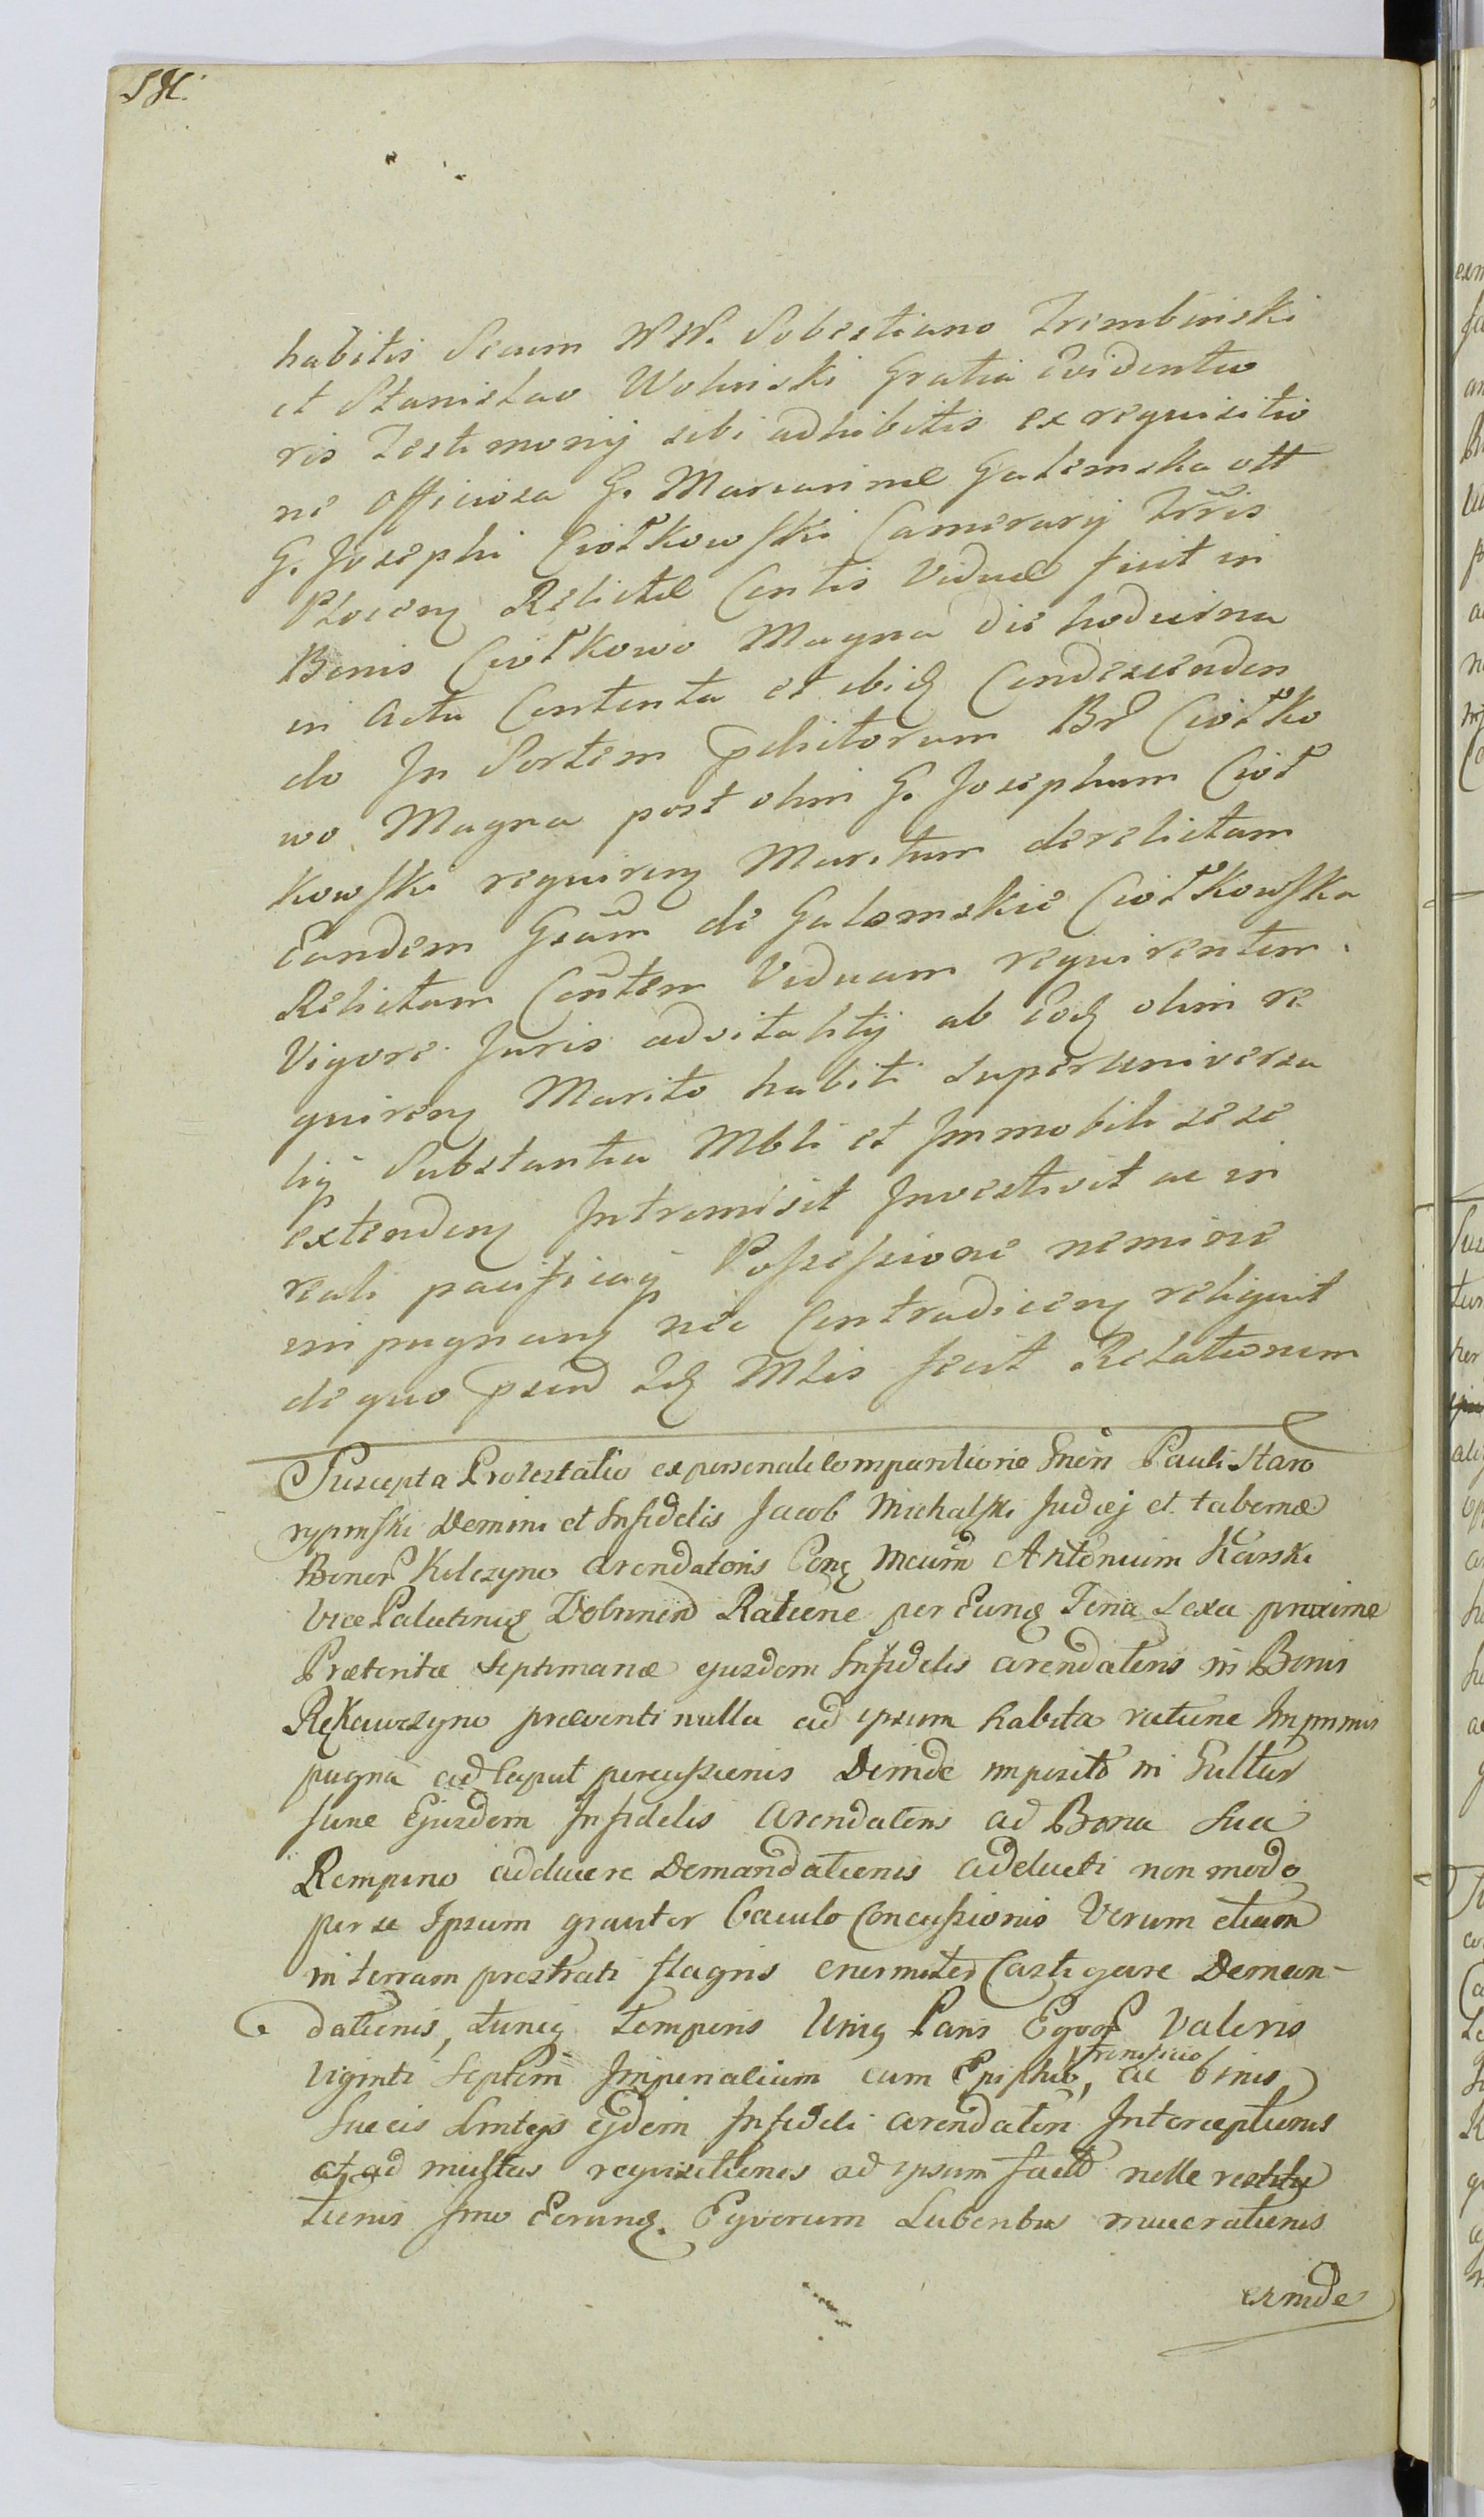 habitis Secum NN. Sobestiano Trembinski
et Stanislao Wolinski Gratia Evidentio
ris Testimonij sibi adhibitis ex requisitio
ne Officiosa G. Mariannæ Galemska olt
G. Josephi Ciołkowski Camerarij Trris
Plocen Relictæ Contis Viduæ fuit in
Bonis Ciołkowo Magna die hodierna
in Actu Contenta et ibiq Condescenden
do In Sortem pdictorum Br Ciołko
wo Magna post olim G. Josephum Cioł
kowski requiren Maritum derelictam
Eandem Gsam de Galomskie Ciołkowska
Relictam Contem Viduam requirentem
Vigore Juris advitalitij ab Eoq olim re
quiren Marito habiti super universa
lij Substantia Mbli et Immobili sese
extenden Intromisit Investivit ac in
reali pacificaq Possessione nemine
impugnan nec Contradicen reliquit
de quo psend Idq Mlis fecit Relationem
Suscepta Protestatio ex personali Comparitione Gnēri Pauli Staro
rypinski Domini et Infidelis Jacob Michalski Judæj et tabernæ
Bonor Kolczyno arendatoris Conq Mcum Antonium Karski
Vice Palatinus Dobrinen Ratione per Eunq Feria Sexa proxime
Præteritæ Septimanæ ejusdem Infidelis arendatoris in Bonis
Rękawczyno præventi nulla ad ipsum habita ratione Inprimis
pugna ad Caput percussionis Deinde imposito in Guttur
fune Ejusdem Infidelis Arendatoris ad Bona sua
Rempino adducere Demandationis adducti non modo
per se Ipsum graviter Baculo Concussionis Verum etiam
in terram prostrati flagris enormiter Castigare Deman-
dationis, tuncq temporis Unius Paris Equor Valoris
Viginti Septem Imperialium cum Ephippio, frenisicio ac binis
Succis Linteis Ejdem Infideli arendatori Interceptionis
at ad multas requisitiones ad ipsum factas nolle restitu
tionis Imo Eorunq. Equorum Lubenbus macerationis
exinde